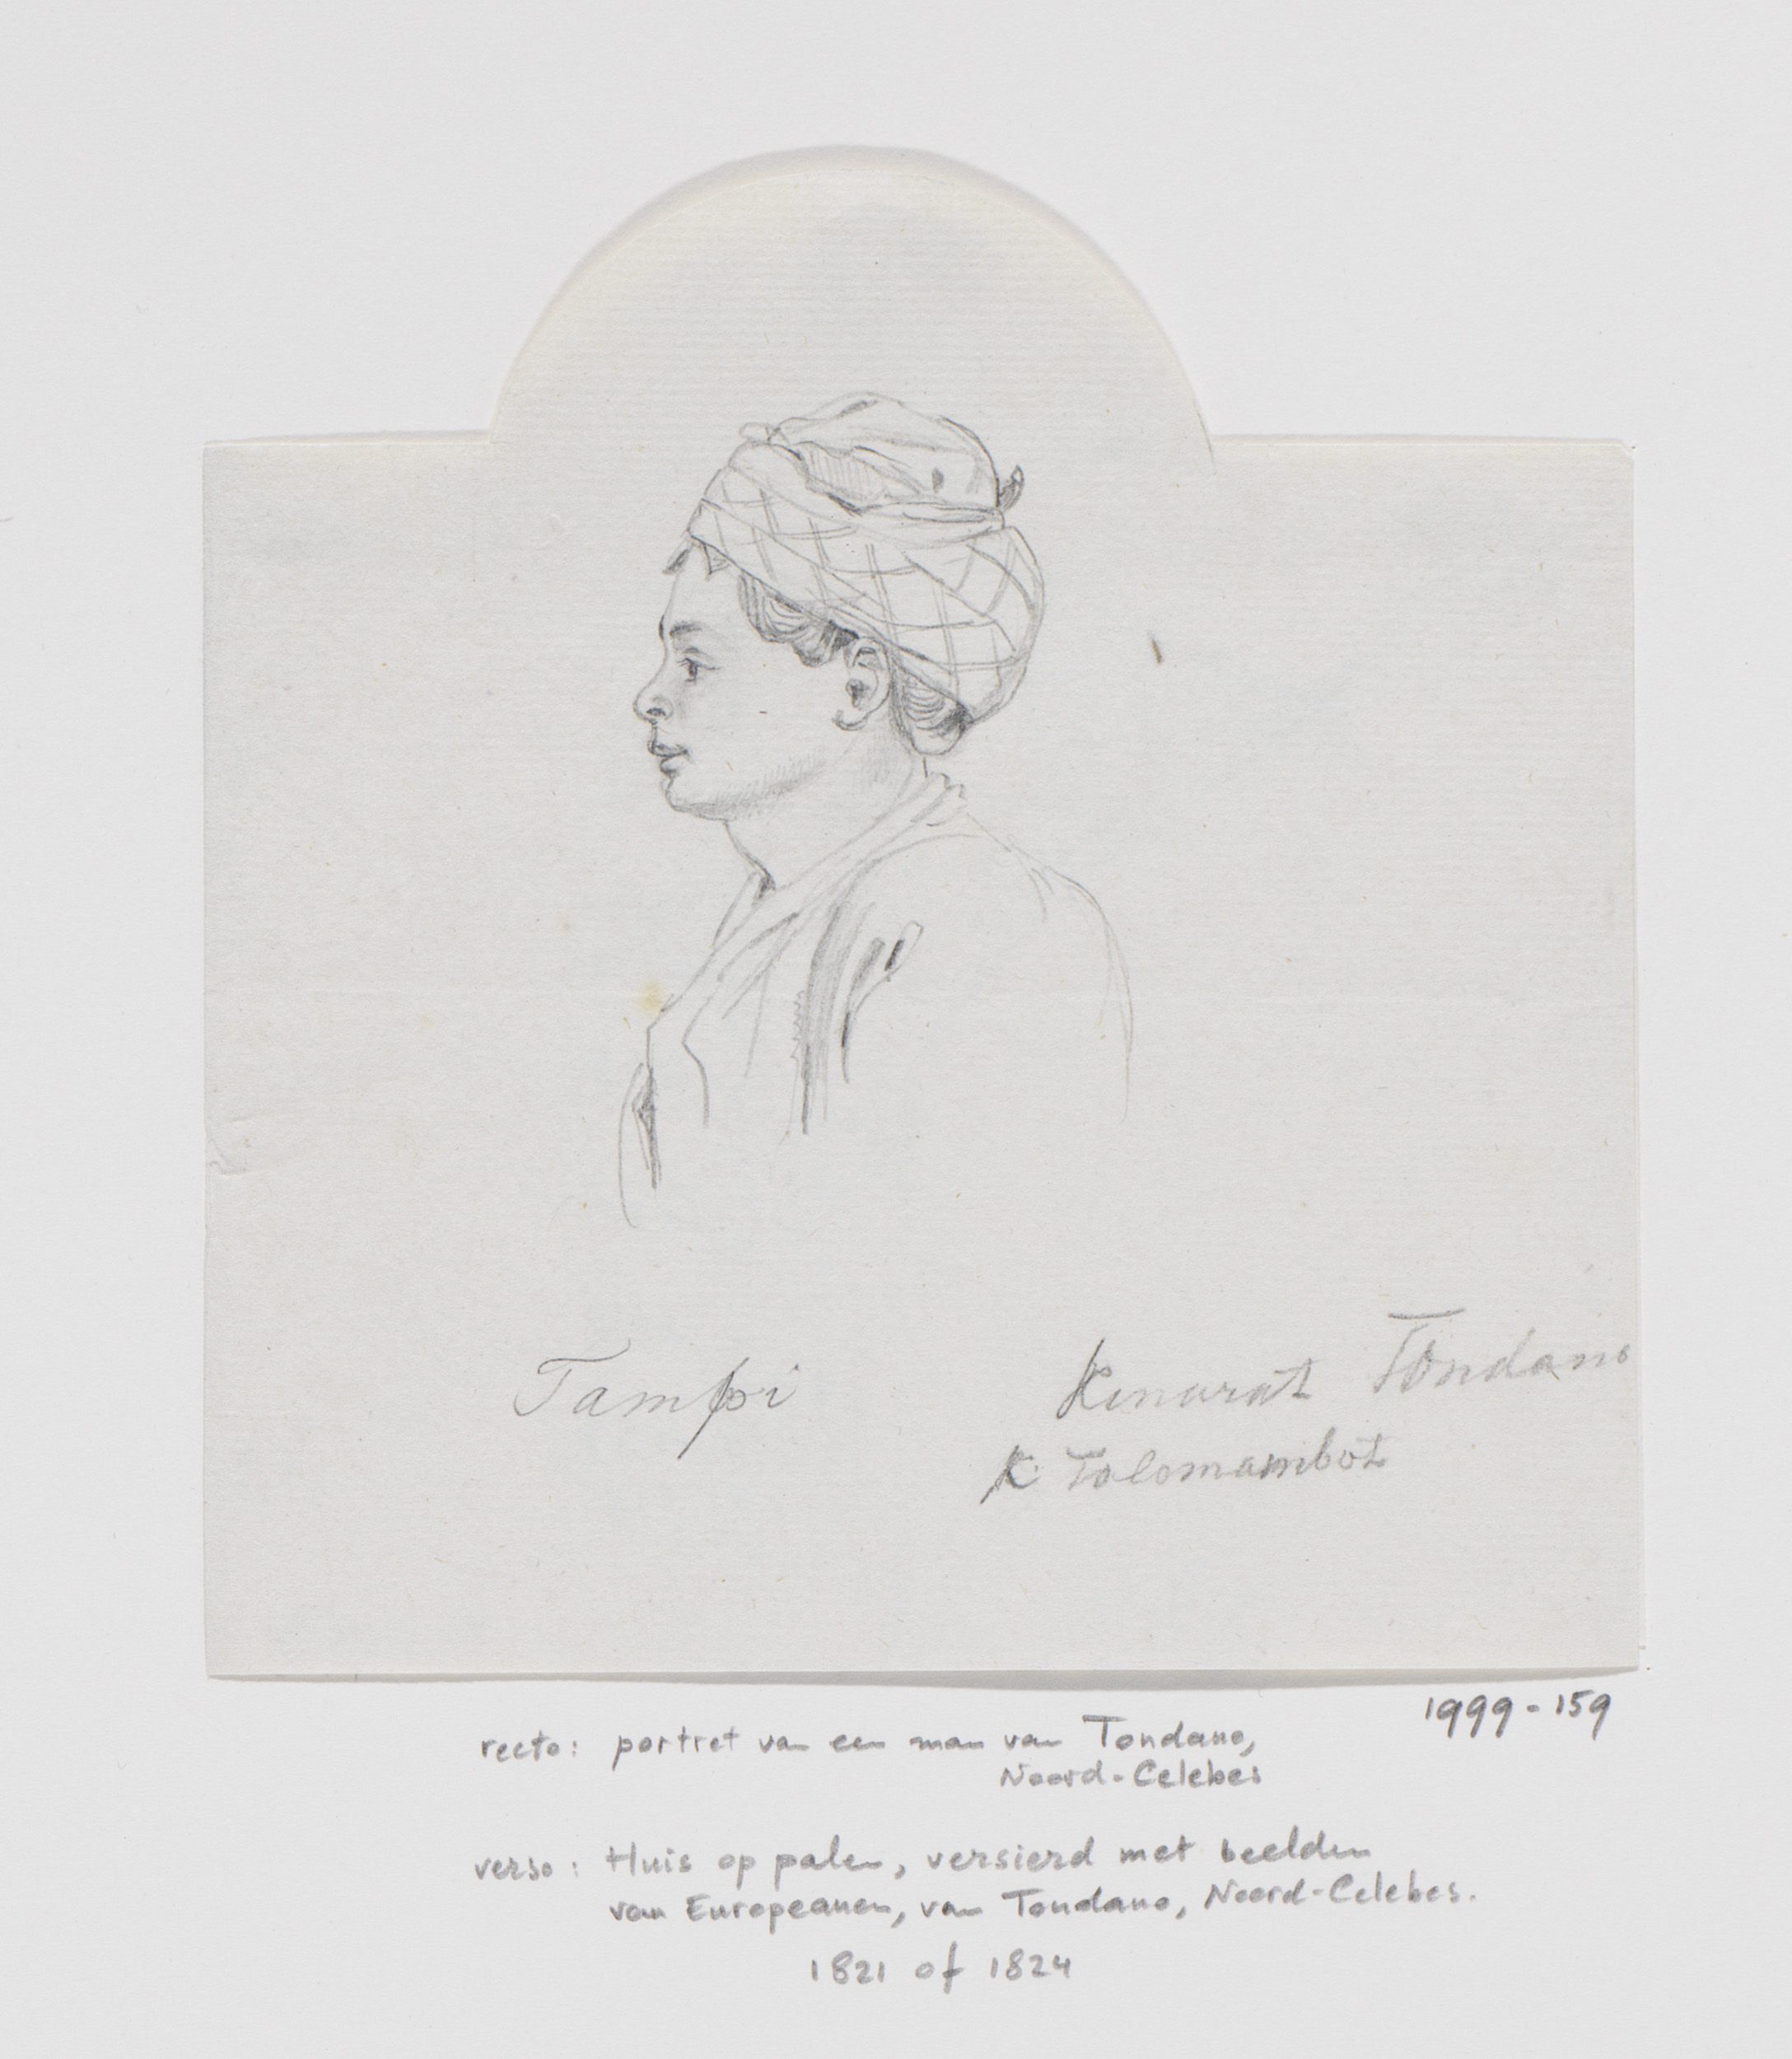 Tampi
Kinarat Tondano
K: Tolomambot
1999-159
recto: portret van een man van Tondano,
Noord-Celebes
verso: Huis op palen, versierd met beelden
van Europeanen, van Tondano, Noord-Celebes.
1821 of 1824